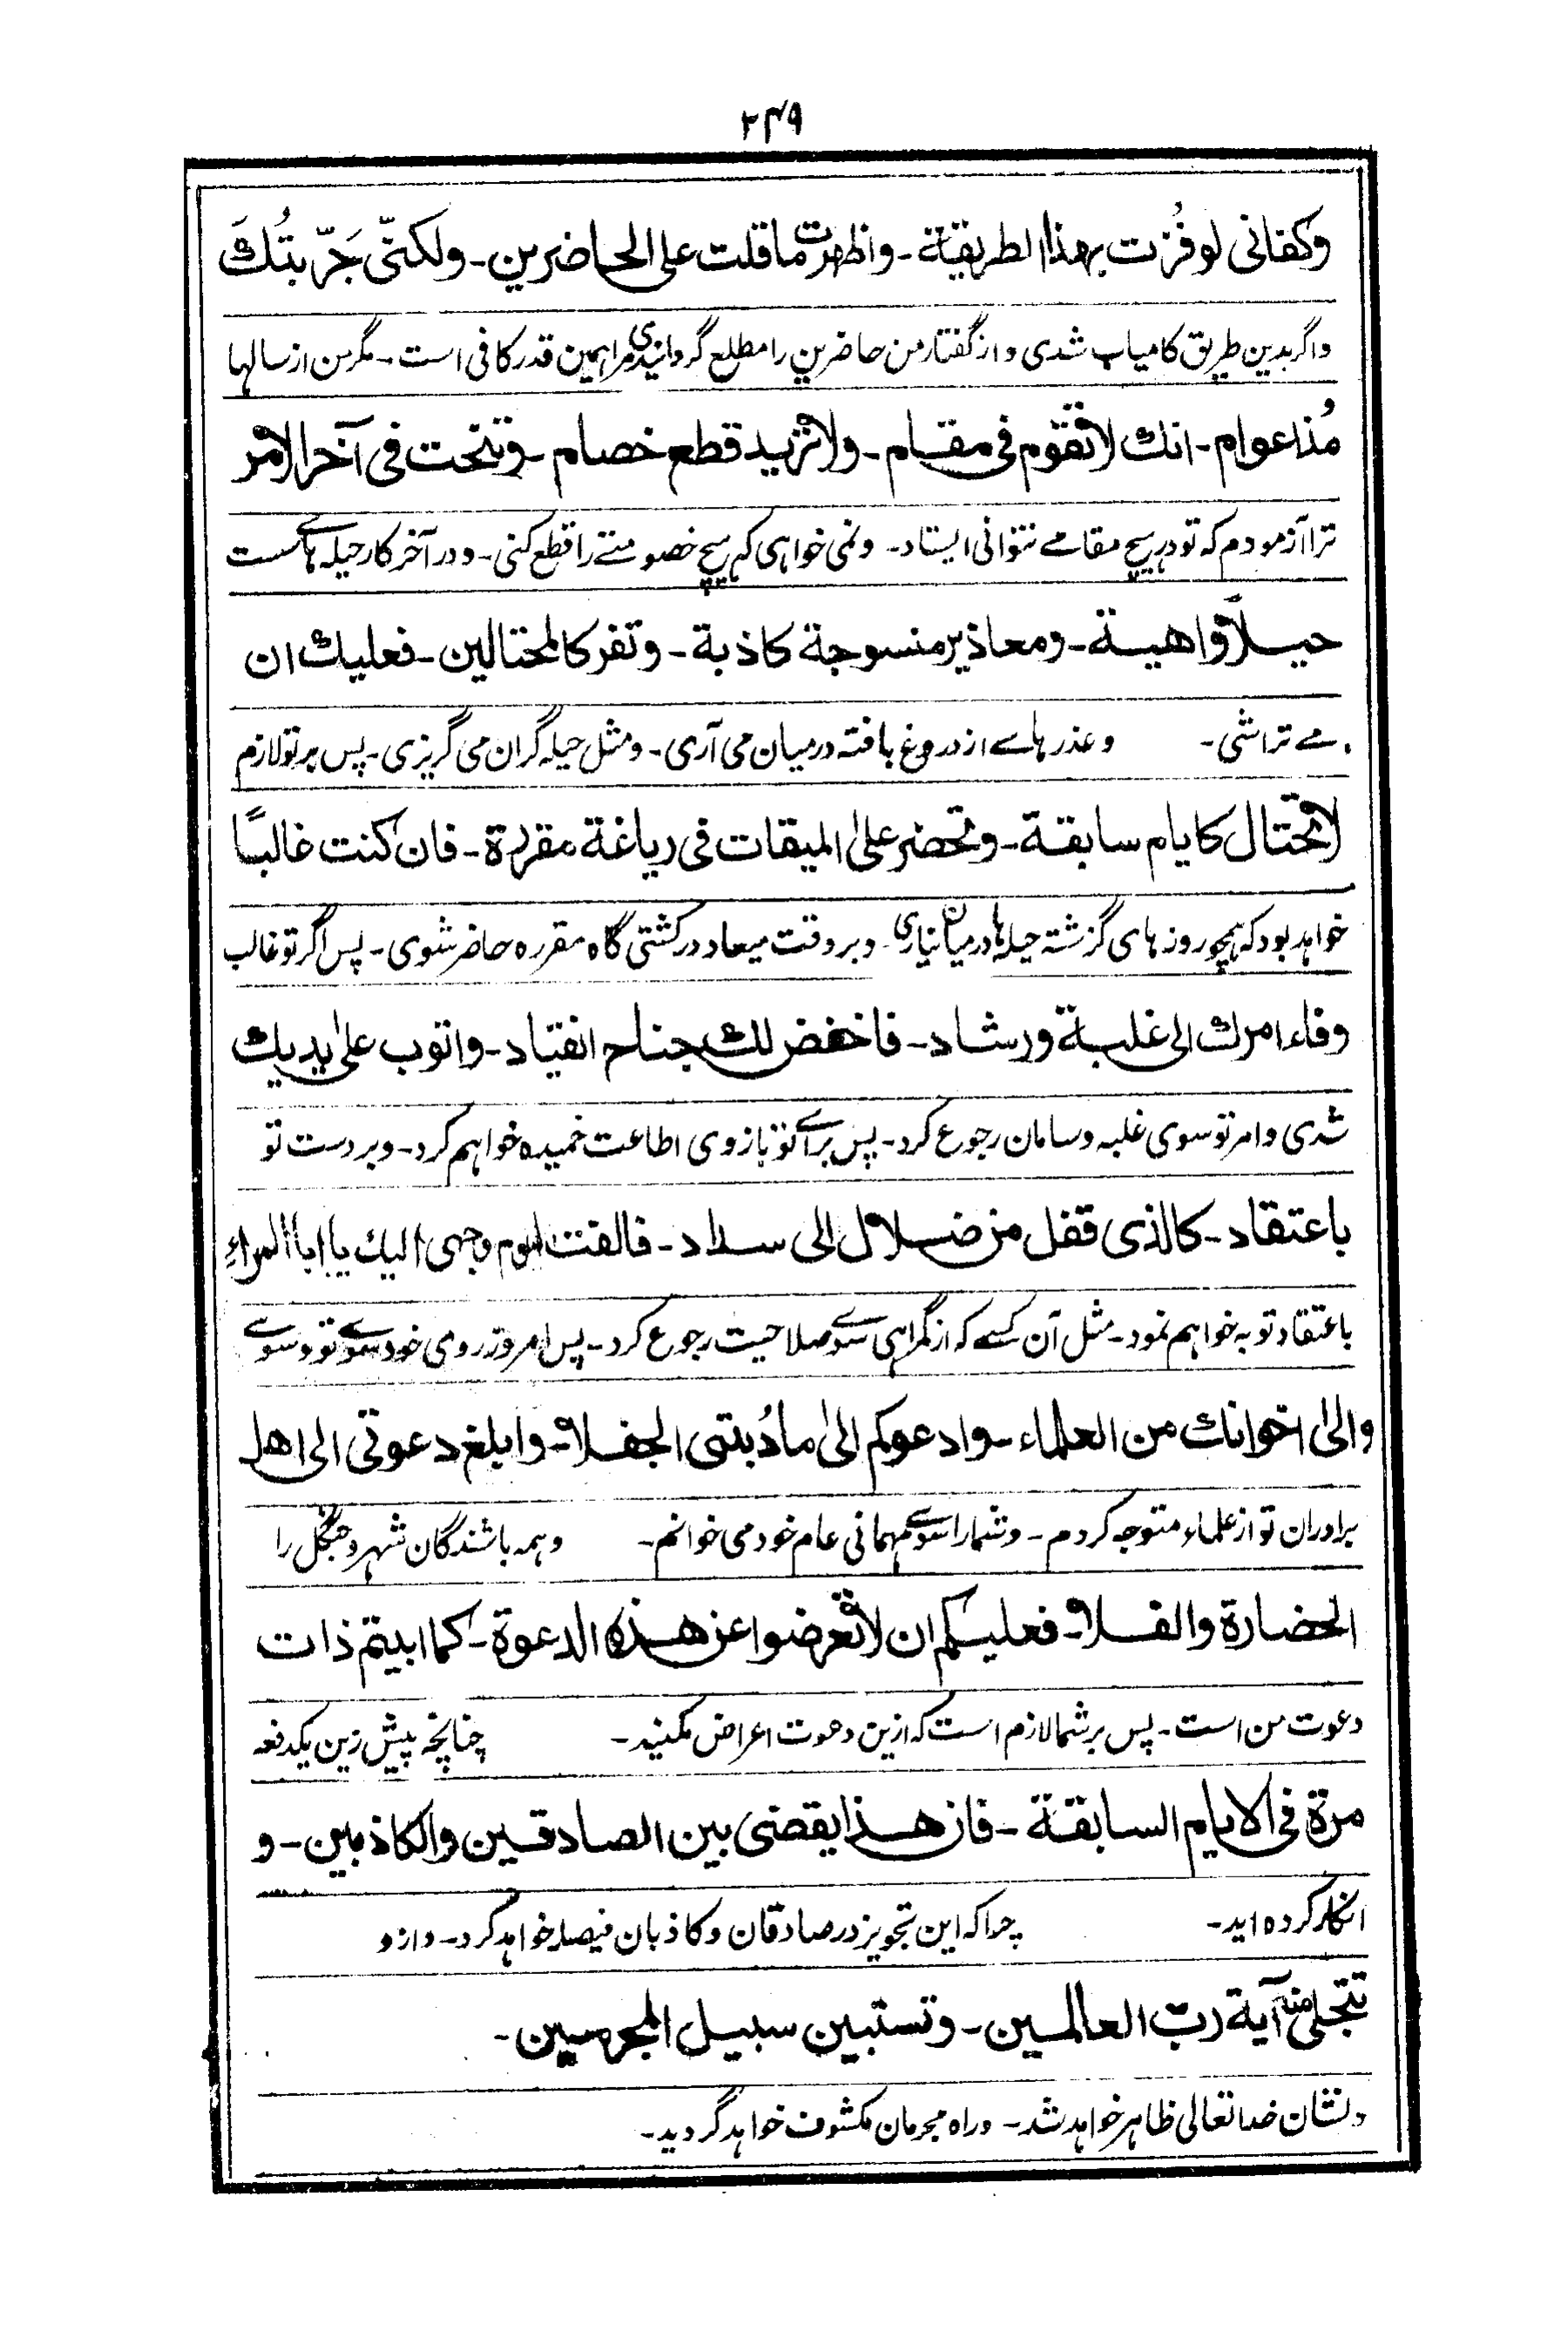 ۲۴۹
وكفانى لو فُزت بهذا الطريقة۔ واظهرت ما قلت على الحاضرين۔ ولكنّى جَرّبتُكَ
واگر بدین طریق کامیاب شدی و از گفتار من حاضرین را مطلع گردانیدی مرا همین قدر کافی است۔ مگر من از سالها
مُذ اعوام۔ انك لا تقوم فى مقام۔ ولا تريد قطع خصام۔ وتنحت فى آخر الامر
ترا آزمودم که تو در هیچ مقامے نتوانی ایستاد۔ ونمی خواهی که هیچ خصومتے را قطع کنی۔ ودر آخر کار حیله هائے سست
حيلًا واهية۔ ومعاذير منسوجة كاذبة۔ وتفر كالمحتالين۔ فعليك ان
مے تراشی۔ وعذر هاے از دروغ بافته درمیان می آری۔ ومثل حیله گران می گریزی۔ پس بر تو لازم
لا تحتال كايام سابقة۔ وتحضر على الميقات فى رياغة مقررة۔ فان كنت غالبًا
خواهد بود که همچو روزهای گزشته حیله ها درمیان نیاری۔ وبر وقت میعاد در کشتی گاه مقرره حاضر شوی۔ پس اگر تو غالب
وفاء امرك الى غلبة ورشاد۔ فاخفض لك جناح انقياد۔ واتوب على يديك
شدی وامر تو سوی غلبه وسامان رجوع کرد۔ پس برائے تو بازوی اطاعت خمیده خواهم کرد۔ وبر دست تو
باعتقاد۔ كالذى قفل من ضلال الى سداد۔ فالفت اليوم وجهى اليك يا ابا المراء
باعتقاد توبه خواهم نمود۔ مثل آن کسے که از گمراهی سوئے صلاحیت رجوع کرد۔ پس امروز روی خود سوئے تو وسوئے
والى اخوانك من العلماء۔ وادعوكم الى مادُبتى الجفلا۔ وابلغ دعوتى الى اهل
برادران تو از علماء متوجه کردم۔ وشما را سوئے مهمانی عام خود می خوانم۔ وهمه باشندگان شهر وجنگل را
الحضارة والفلا۔ فعليكم ان لا تعرضوا عن هذه الدعوة۔ كما ابيتم ذات
دعوت من است۔ پس بر شما لازم است که ازین دعوت اعراض مکنید۔ چنانچه پیش زین یکدفعه
مرة فى الايام السابقة۔ فان هذا يقضى بين الصادقين والكاذبين۔ و
انکار کرده اید۔ چرا که این تجویز در صادقان وکاذبان فیصله خواهد کرد۔ وازو
تتجلى منه آية رب العالمين۔ وتستبين سبيل المجرمين۔
ونشان خدا تعالی ظاهر خواهد شد۔ وراه مجرمان مکشوف خواهد گردید۔